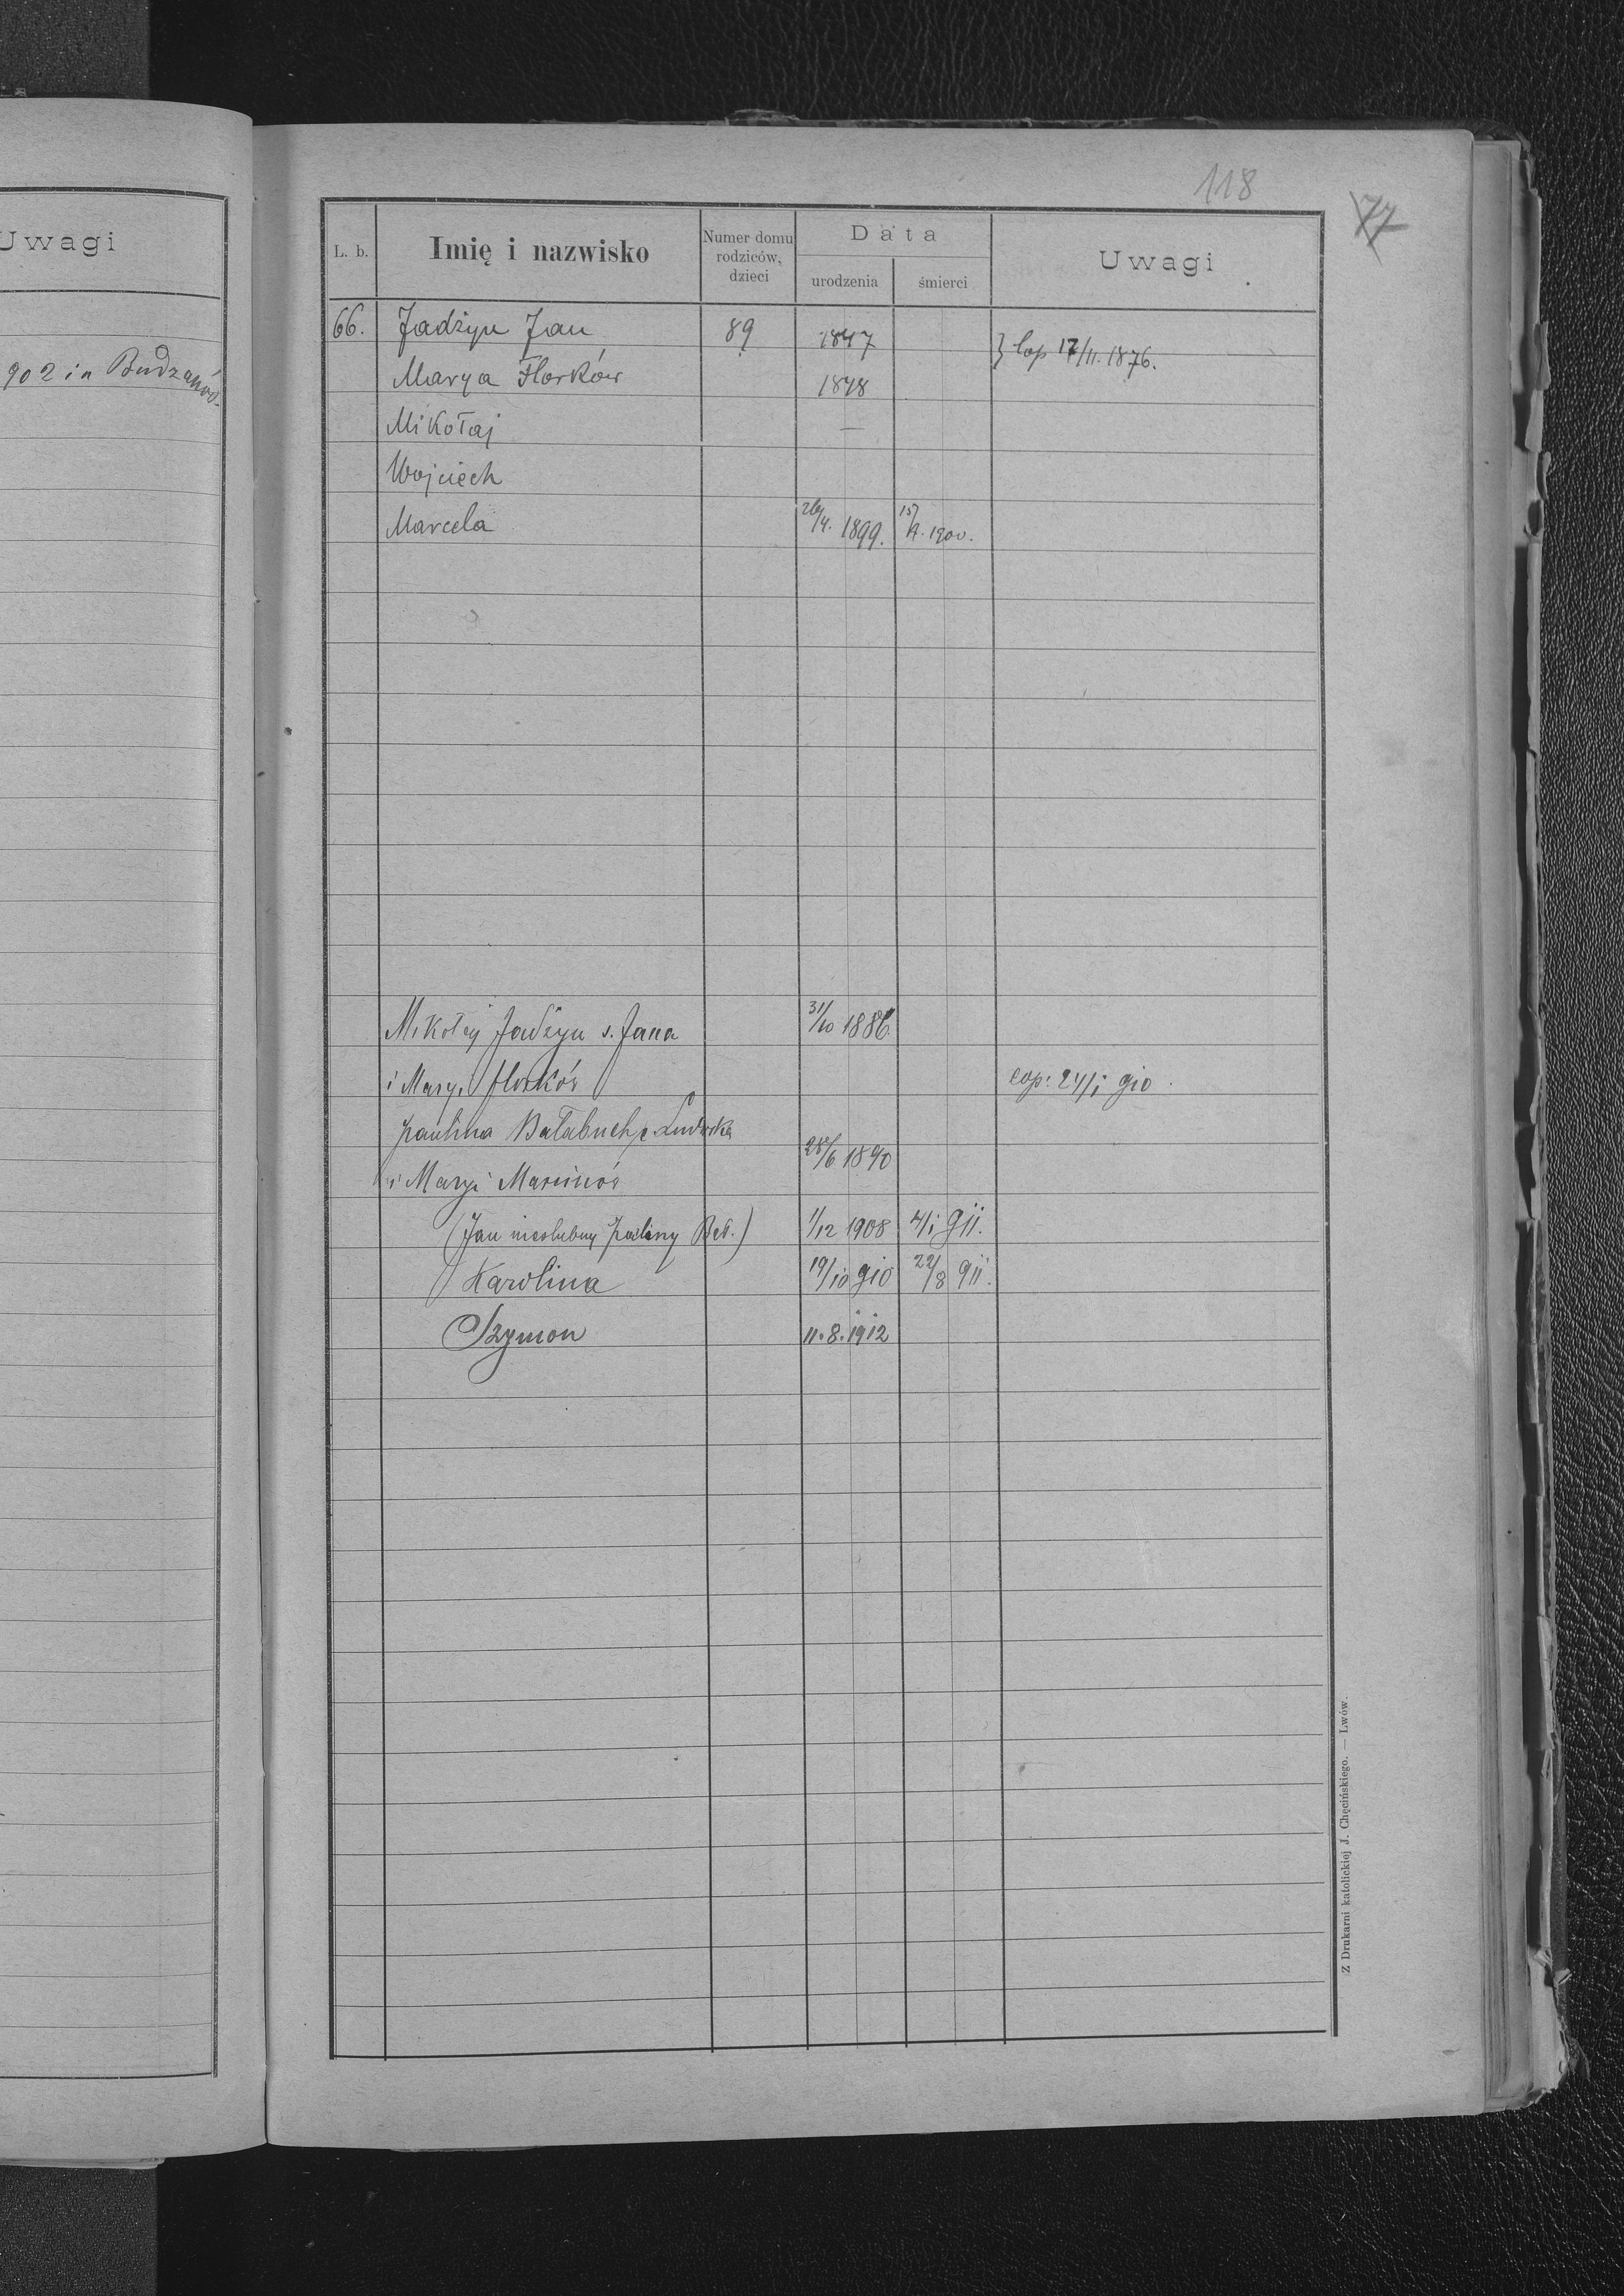 Uwagi
902 in Budzanów.
118
77
L. b.
Imię i nazwisko
Numer domu rodziców, dzieci
Data
urodzenia
śmierci
Uwagi
66. Jadżyn Jan 89 1847
} Cop 17/11. 1876.
Marya Florków 1848
Mikołaj —
Wojciech
Marcela 26/4. 1899. 15/ 1900.
Mikołaj Jadżyn s. Jana 31/10 1886.
i Maryi Florków cop: 24/i 910.
Paulina Bałabuch c. Ludwika
28/6 1890
i Maryi
(Jan nieślubny Pauliny Bał.) 1/12 1908 4/i 911.
Karolina 19/10 910 22/8 911.
Szymon 11.8.1912
Z Drukarni katolickiej J. Chęcińskiego. — Lwów.